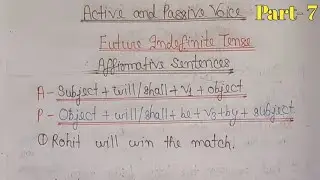 Active and Passive Voice
Part-7
Future Indefinite Tense
Affirmative Sentences
A- Subject + will/shall + V₁ + object
P- Object + will/shall + be + V₃ + by + subject
① Rohit will win the match.